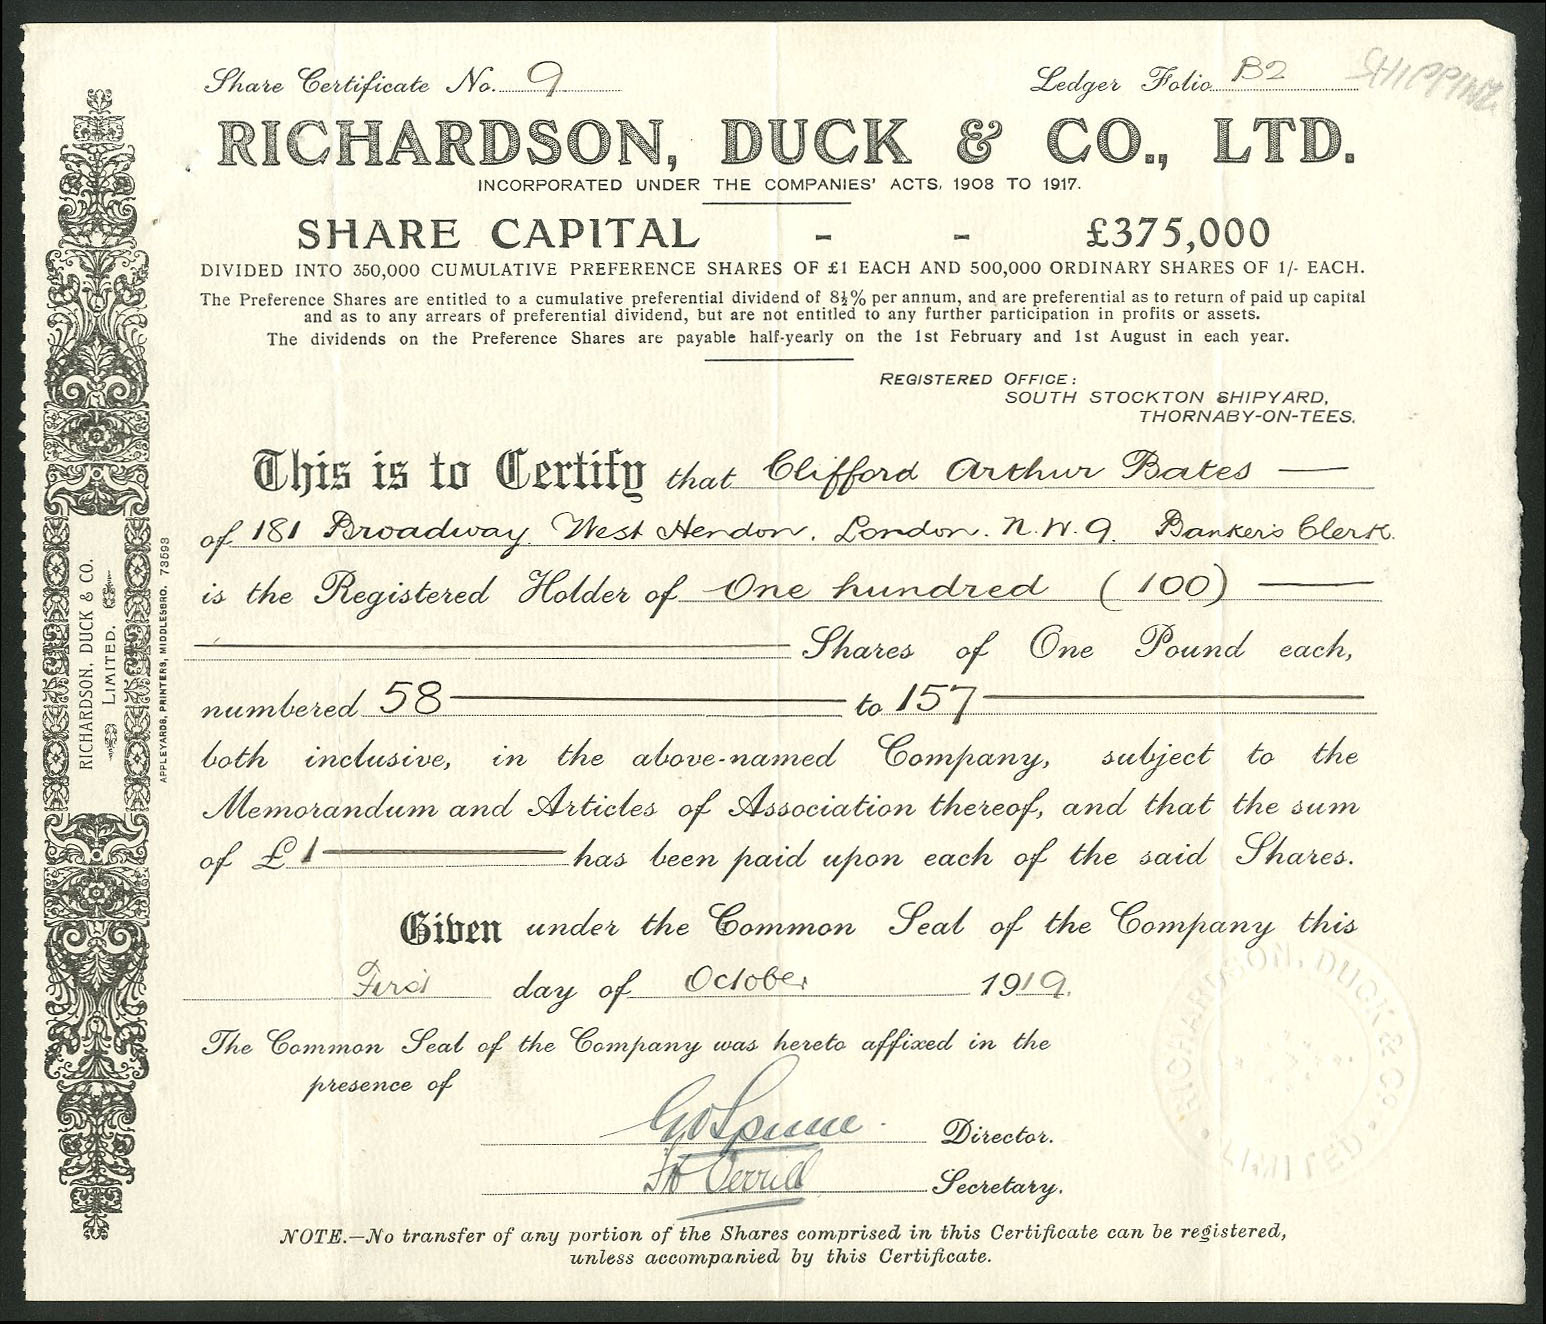 Share Certificate No. 9
Ledger Folio B2
SHIPPING
RICHARDSON, DUCK & CO., LTD.
INCORPORATED UNDER THE COMPANIES' ACTS, 1908 TO 1917.
SHARE CAPITAL - - £375,000
DIVIDED INTO 350,000 CUMULATIVE PREFERENCE SHARES OF £1 EACH AND 500,000 ORDINARY SHARES OF 1/- EACH.
The Preference Shares are entitled to a cumulative preferential dividend of 8½% per annum, and are preferential as to return of paid up capital
and as to any arrears of preferential dividend, but are not entitled to any further participation in profits or assets.
The dividends on the Preference Shares are payable half-yearly on the 1st February and 1st August in each year.
REGISTERED OFFICE:
SOUTH STOCKTON SHIPYARD,
THORNABY-ON-TEES.
This is to Certify that Clifford Arthur Bates
of 181 Broadway West Hendon. London. N.W.9. Banker's Clerk.
is the Registered Holder of One hundred (100)
Shares of One Pound each,
numbered 58 to 157
both inclusive, in the above-named Company, subject to the
Memorandum and Articles of Association thereof, and that the sum
of £1 has been paid upon each of the said Shares.
Given under the Common Seal of the Company this
First day of October 1919.
The Common Seal of the Company was hereto affixed in the
presence of
Director.
Secretary.
NOTE.—No transfer of any portion of the Shares comprised in this Certificate can be registered,
unless accompanied by this Certificate.
RICHARDSON, DUCK & CO.
LIMITED.
APPLEYARDS, PRINTERS, MIDDLESBRO. 73593
RICHARDSON, DUCK & CO
LIMITED